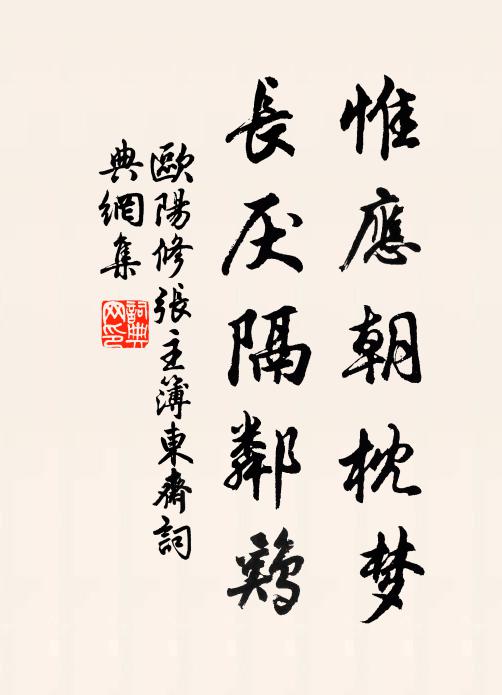 惟應朝枕梦
長厌隔鄰鷄
歐陽修張主簿東齋詞
典網集
詞典网印